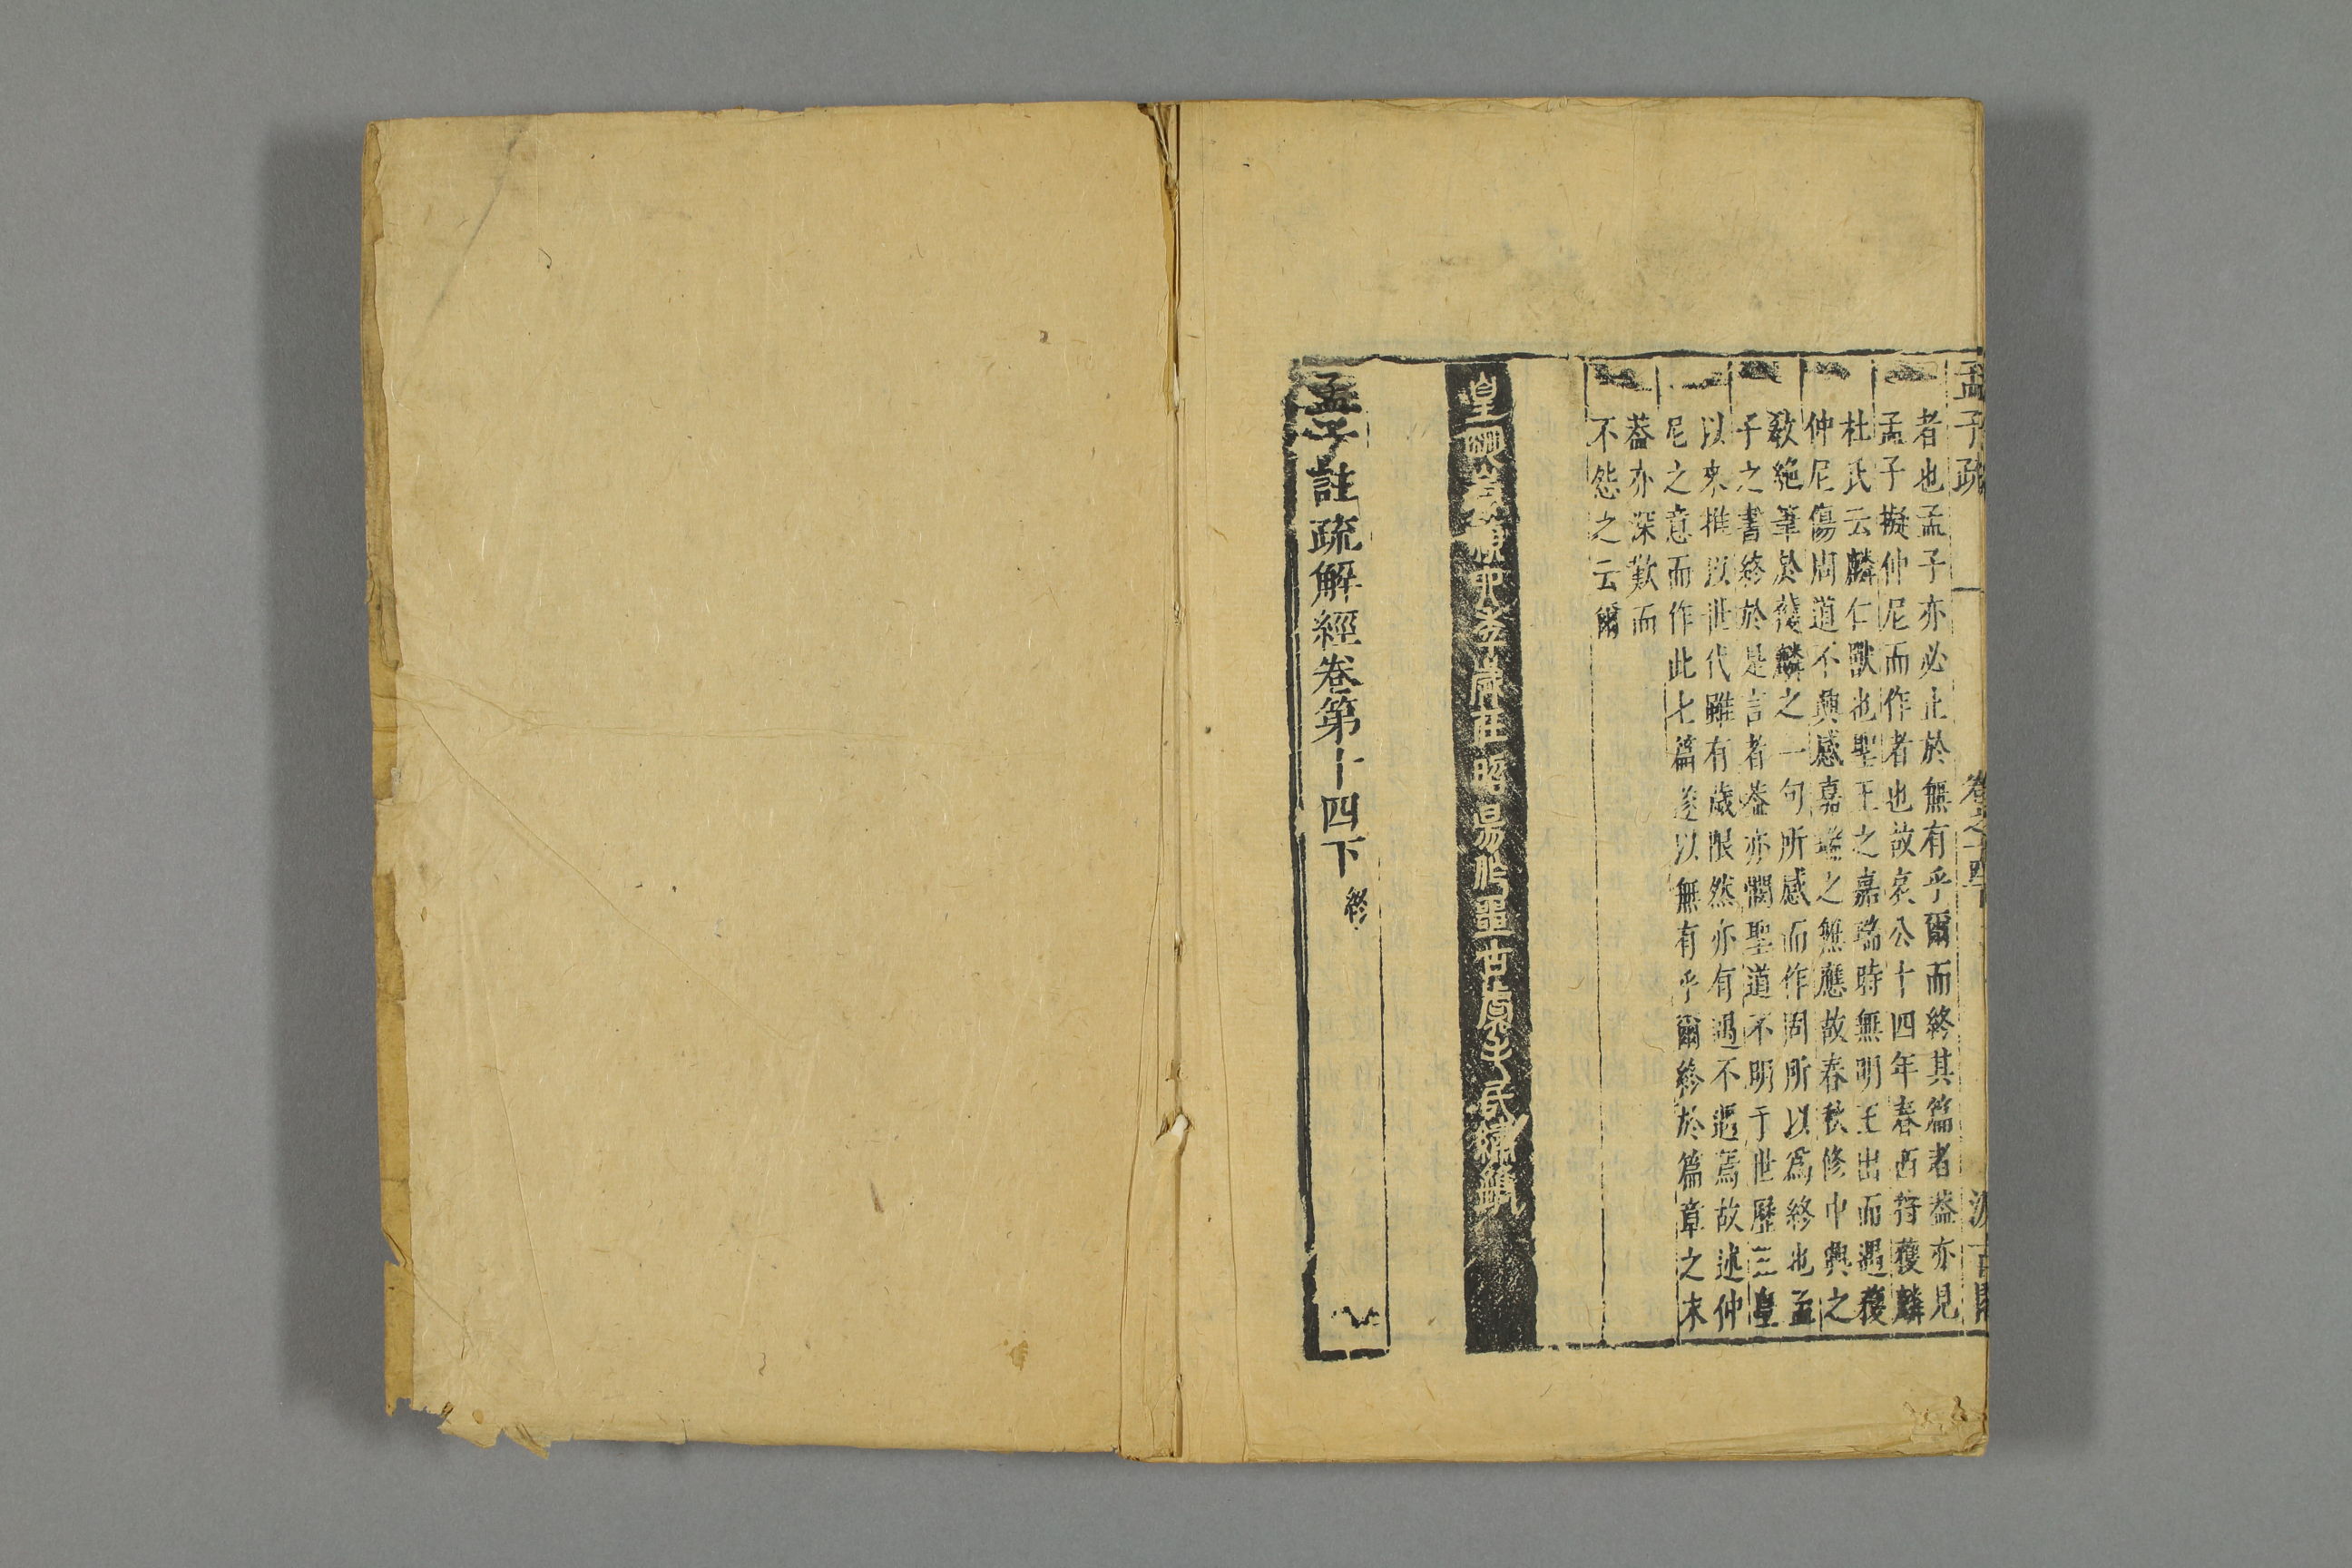 孟子疏 卷之十四下 汲古閣
者也孟子亦必止於無有乎爾而終其篇者葢亦見
孟子擬仲尼而作者也故哀公十四年春西狩獲麟
杜氏云麟仁獸也聖王之嘉瑞時無明王出而遇獲
仲尼傷周道不興感嘉瑞之無應故春秋修中興之
敎絶筆於獲麟之一句所感而作固所以爲終也孟
子之書終於是言者葢亦憫聖道不明于世歷三皇
以來推以世代雖有歲限然亦有遇不遇焉故述仲
尼之意而作此七篇遂以無有乎爾終於篇章之末
葢亦深歎而
不怨之云爾
皇明崇禎癸酉歲在昭陽作噩古虞毛氏繡鐫
孟子註疏解經卷第十四下 終